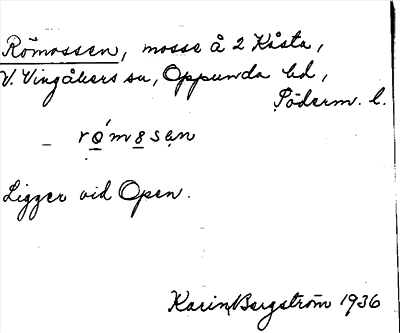 Römossen, mosse å 2 Kåsta,
V. Vingåkers sn, Oppunda hd,
Söderm. l.
– rö́mosen
Ligger vid Open.
Karin Bergström 1936